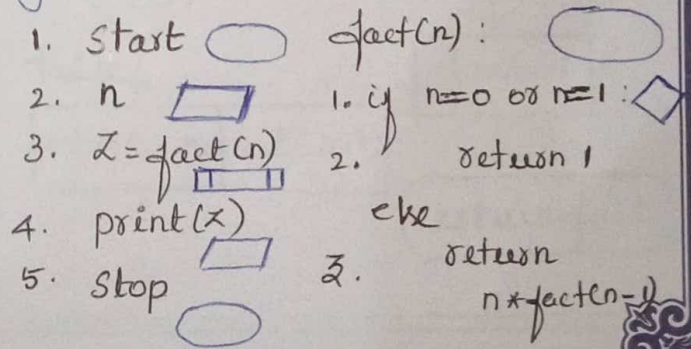 1. Start
2. n
3. Z = fact(n)
4. print(z)
5. Stop
fact(n) :
1. if n==0 or n==1 :
2. return 1
else
3. return
n*fact(n-1)